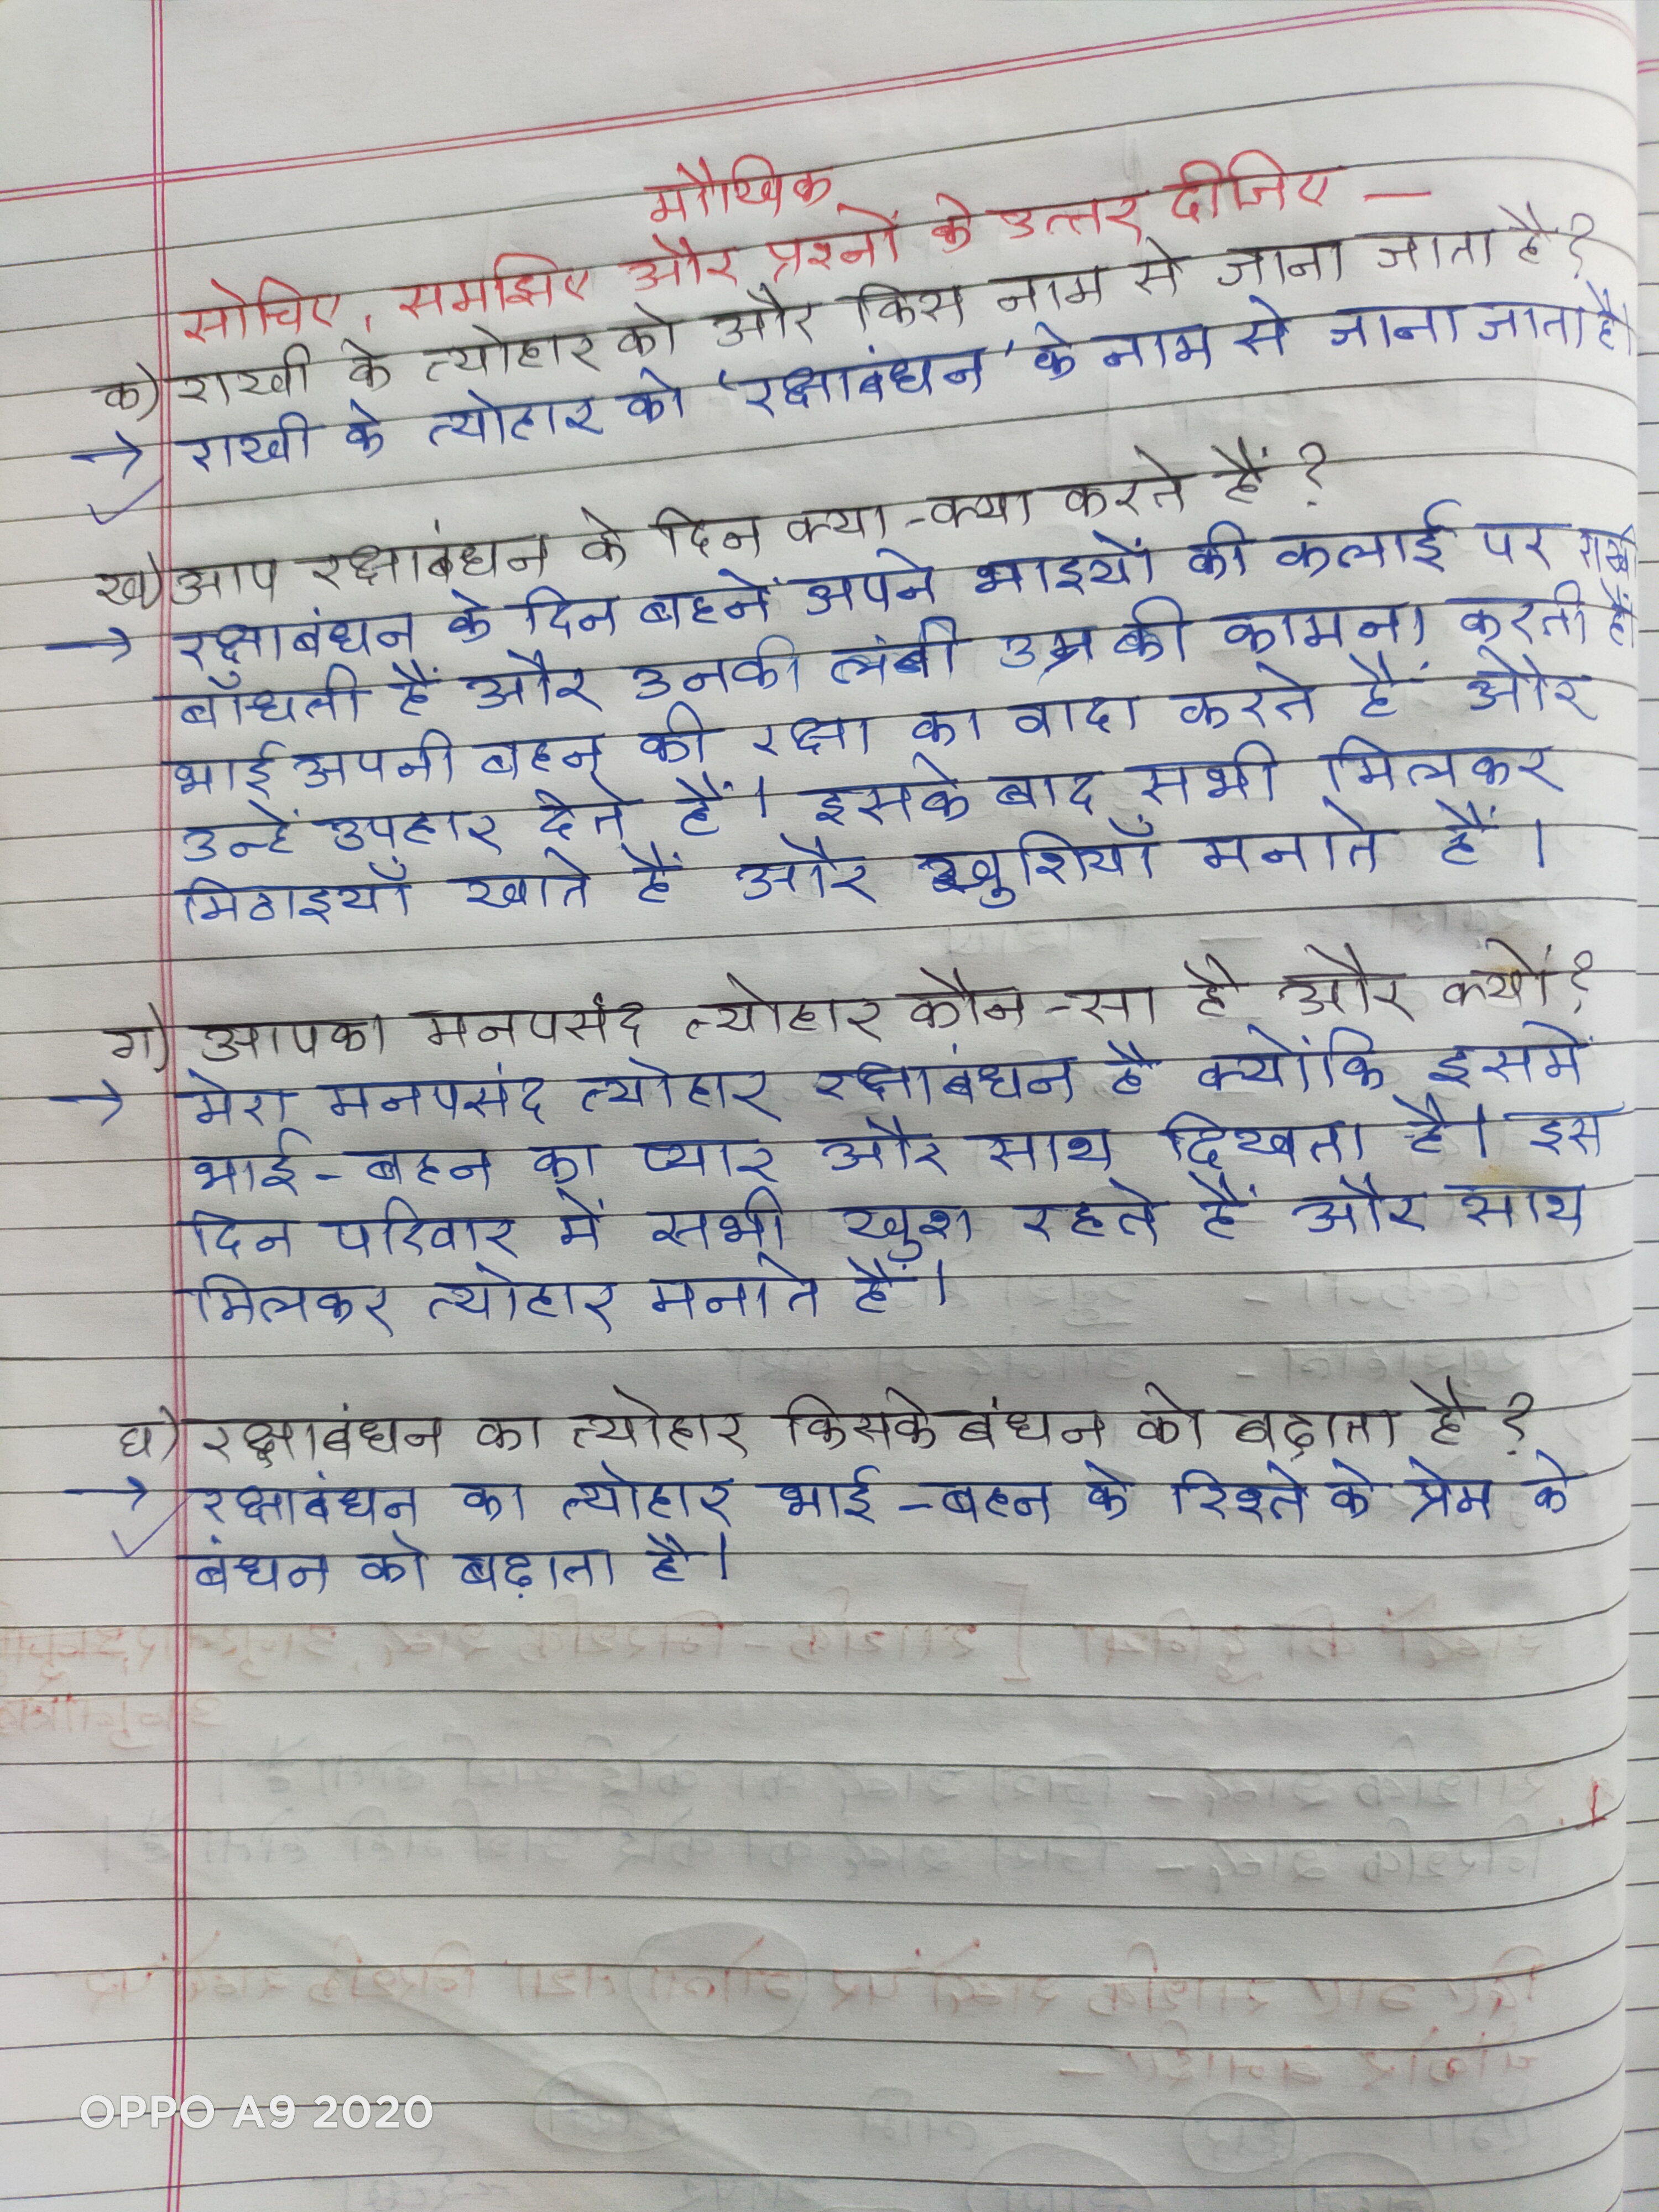 मौखिक
सोचिए, समझिए और प्रश्नों के उत्तर दीजिए —
क) राखी के त्योहार को और किस नाम से जाना जाता है?
→ राखी के त्योहार को 'रक्षाबंधन' के नाम से जाना जाता है।
ख) आप रक्षाबंधन के दिन क्या-क्या करते हैं?
→ रक्षाबंधन के दिन बहनें अपने भाइयों की कलाई पर राखी
बाँधती हैं और उनकी लंबी उम्र की कामना करती हैं।
भाई अपनी बहन की रक्षा का वादा करते हैं और
उन्हें उपहार देते हैं। इसके बाद सभी मिलकर
मिठाइयाँ खाते हैं और खुशियाँ मनाते हैं।
ग) आपका मनपसंद त्योहार कौन-सा है और क्यों?
→ मेरा मनपसंद त्योहार रक्षाबंधन है क्योंकि इसमें
भाई-बहन का प्यार और साथ दिखता है। इस
दिन परिवार में सभी खुश रहते हैं और साथ
मिलकर त्योहार मनाते हैं।
घ) रक्षाबंधन का त्योहार किसके बंधन को बढ़ाता है?
→ रक्षाबंधन का त्योहार भाई-बहन के रिश्ते के प्रेम के
बंधन को बढ़ाता है।
OPPO A9 2020